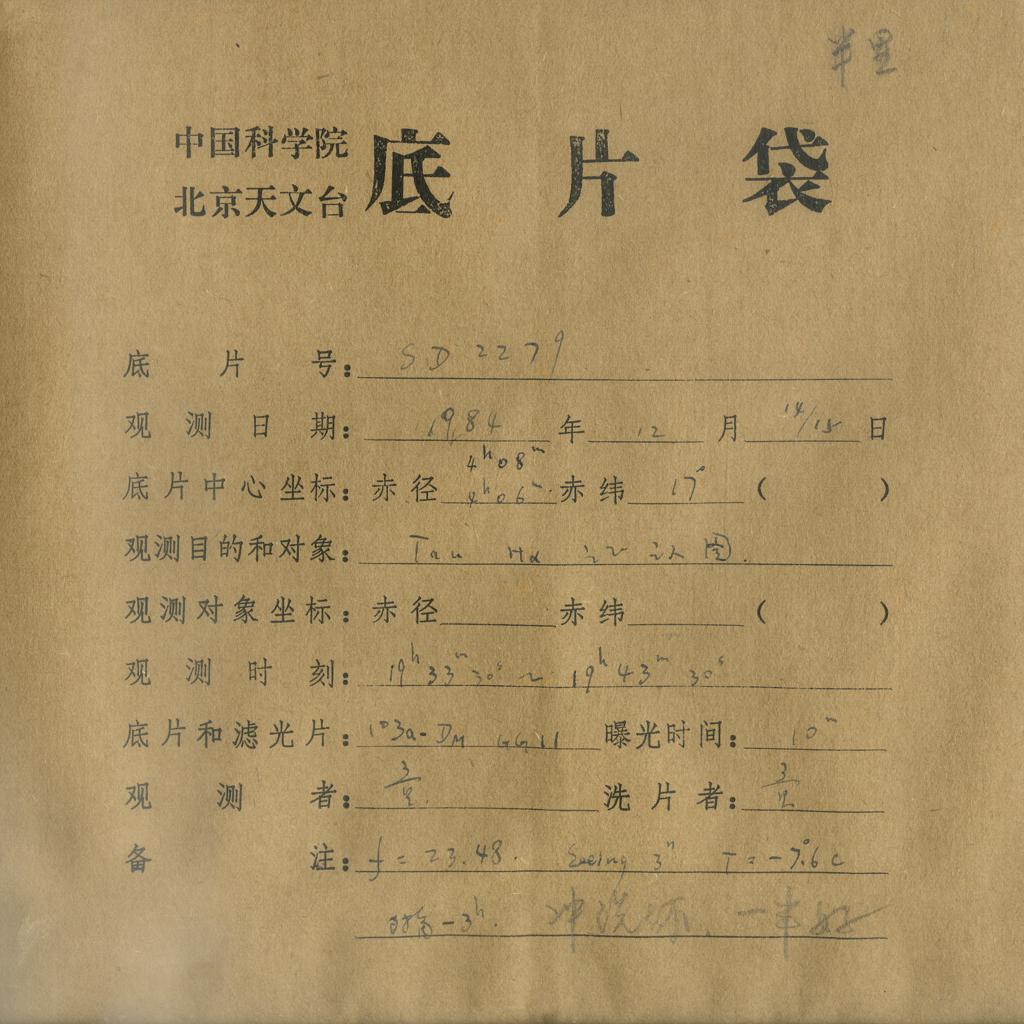 半黑
中国科学院
北京天文台
底片袋
底片号：SD 2279
观测日期：1984年12月14/15日
4h08m
底片中心坐标：赤径4h06m赤纬17°（ ）
观测目的和对象：Tau Hα 证认图.
观测对象坐标：赤径 赤纬 （ ）
观测时刻：19h33m30s ~ 19h43m30s
底片和滤光片：103a-DM GG11 曝光时间：10m
观测者： 洗片者：
备注：f = 23.48. Seeing 3" T = -7°.6 C
时角 -3h. 冲洗坏，一半好